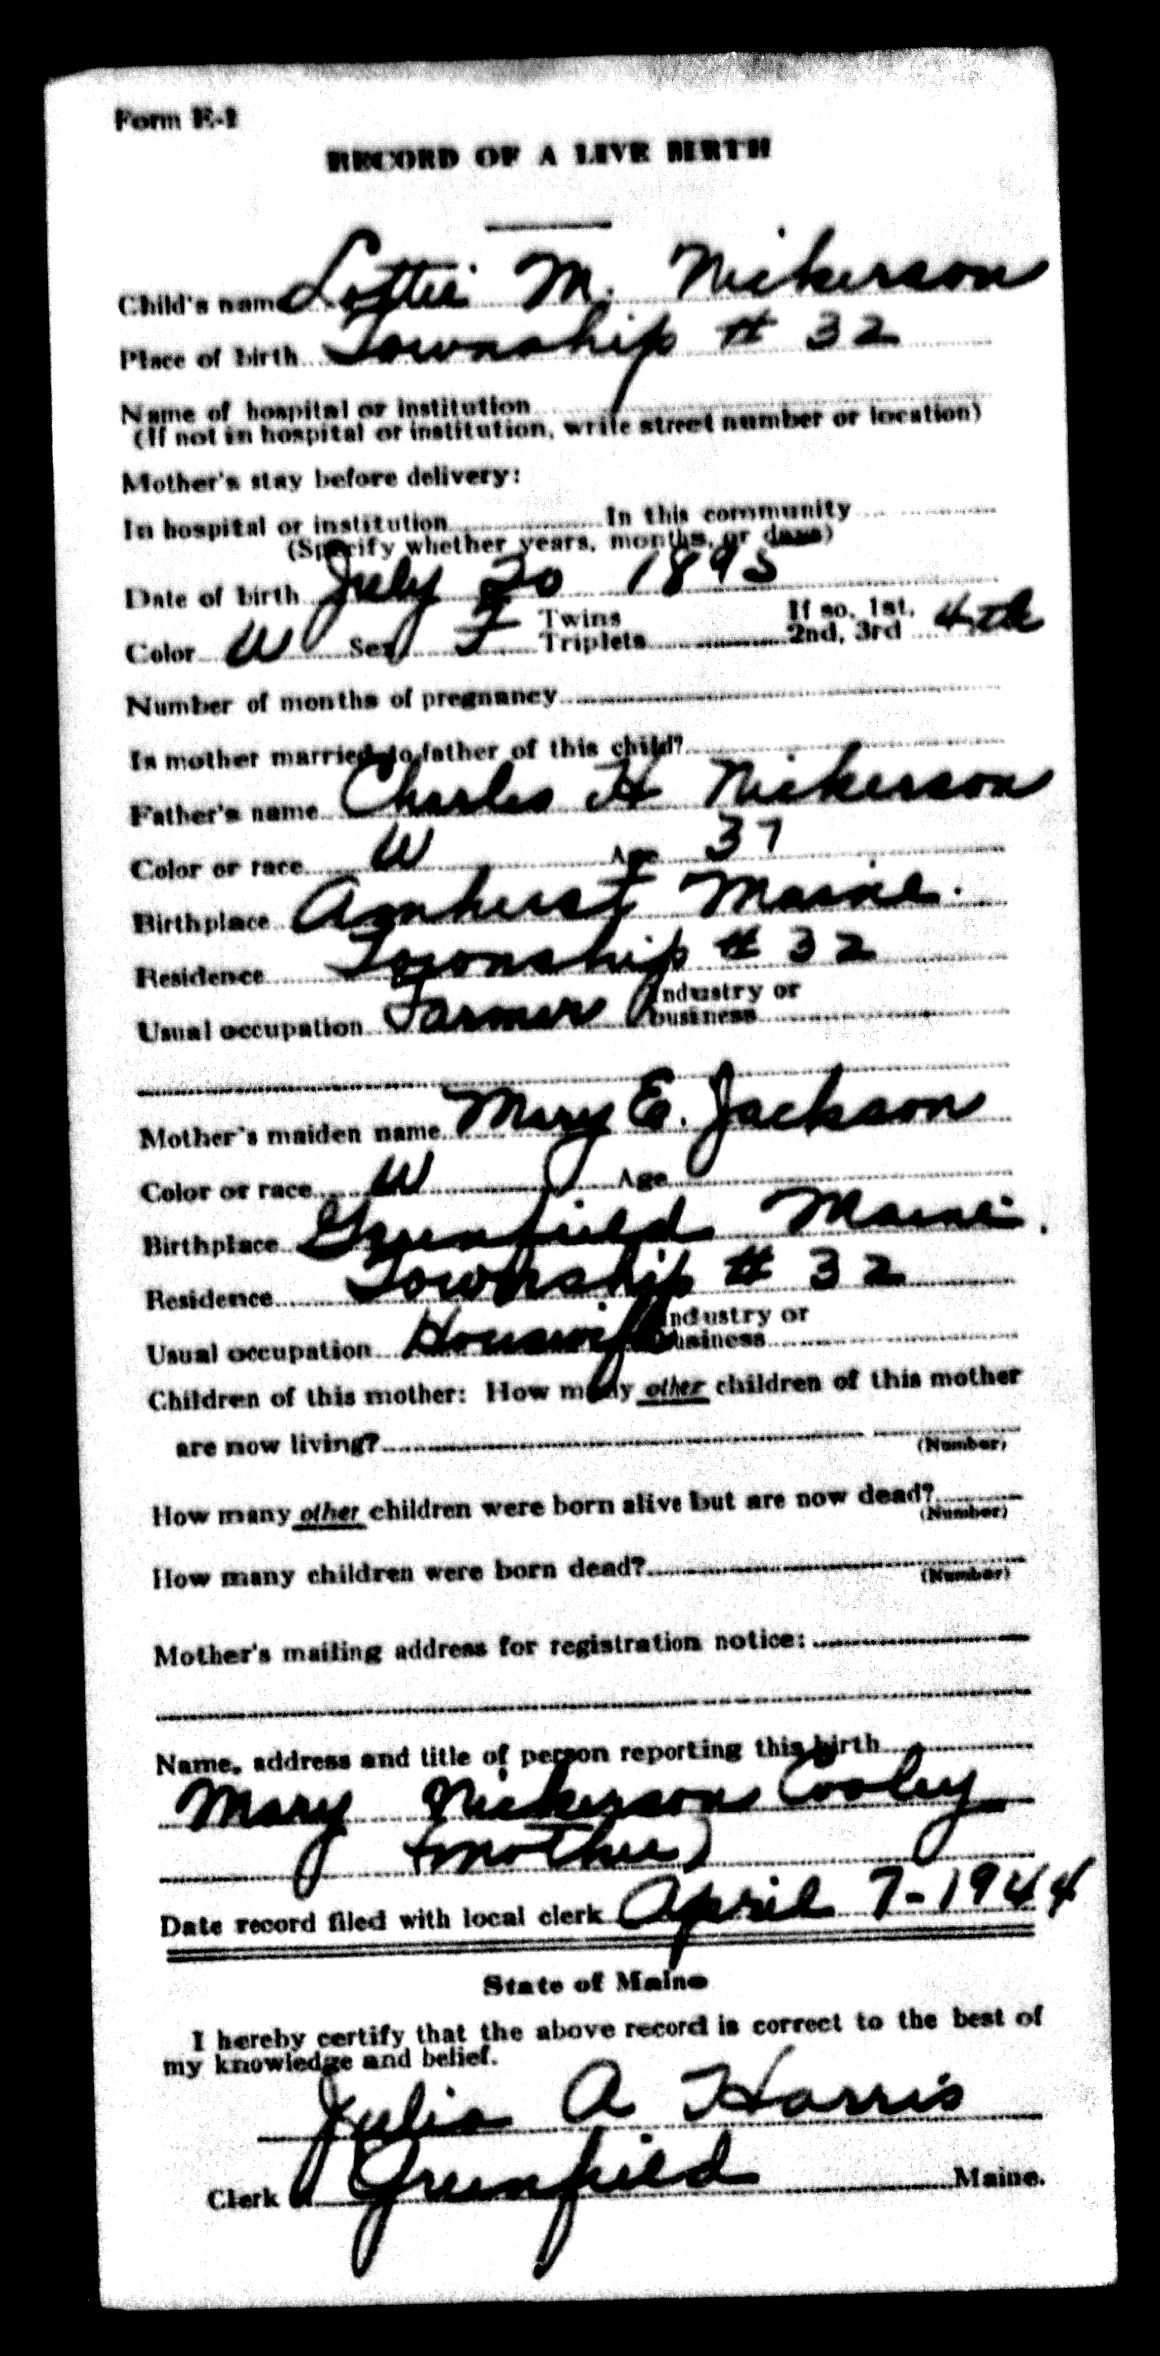 Form E-1
RECORD OF A LIVE BIRTH
Child's name Lottie M. Nickerson
Place of birth Township # 32
Name of hospital or institution
(If not in hospital or institution, write street number or location)
Mother's stay before delivery:
In hospital or institution In this community
(Specify whether years, months, or days)
Date of birth July 20 1895
Color W Sex F Twins Triplets If so, 1st, 2nd, 3rd 4th
Number of months of pregnancy
Is mother married to father of this child?
Father's name Charles H Nickerson
Color or race W Age 37
Birthplace Amherst Maine.
Residence Township # 32
Usual occupation Farmer Industry or business
Mother's maiden name Mary E. Jackson
Color or race W Age
Birthplace Greenfield Maine.
Residence Township # 32
Usual occupation Housewife Industry or business
Children of this mother: How many other children of this mother
are now living? (Number)
How many other children were born alive but are now dead? (Number)
How many children were born dead? (Number)
Mother's mailing address for registration notice:
Name, address and title of person reporting this birth
Mary Nickerson Cooley
(mother)
Date record filed with local clerk April 7-1944
State of Maine
I hereby certify that the above record is correct to the best of
my knowledge and belief.
Julia A Harris
Clerk of Greenfield Maine.